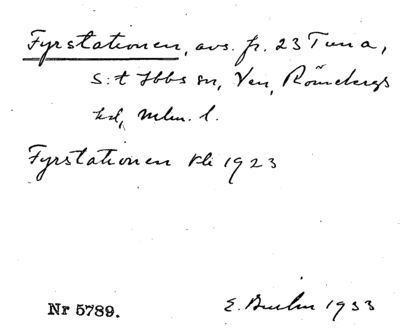 Fyrstationen, avs. fr. 23 Tuna,
S:t Ibbs sn, Ven, Rönnebergs
hd, Mlm. l.
Fyrstationen kli 1923
Nr 5789.
E. 1933